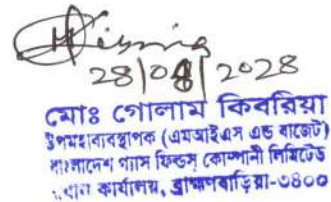 28/08/2028
মোঃ গোলাম কিবরিয়া
উপমহাব্যবস্থাপক (এমআইএস এন্ড বাজেট)
বাংলাদেশ গ্যাস ফিল্ডস্ কোম্পানী লিমিটেড
প্রধান কার্যালয়, ব্রাহ্মণবাড়িয়া-৩৪০০